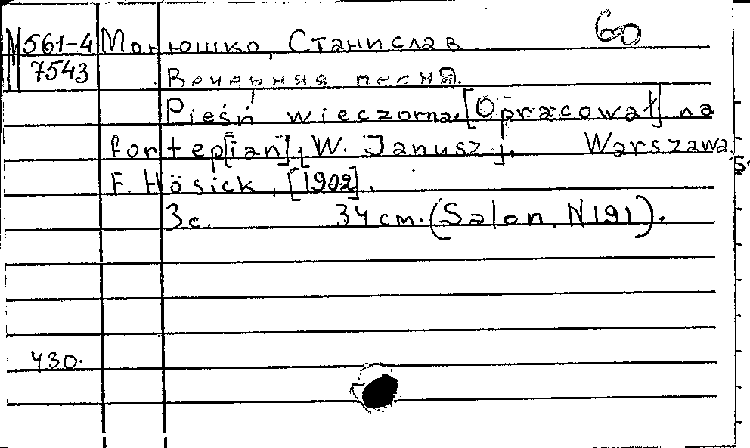 60
М 561-4 Монюшко, Станислав
7543
Вечерняя песня.
Pieśń wieczorna. [Opracował] na
fortep[ian] W. Janusz.
Warszawa,
F. Hösick, [1902].
3 с. 34 cm. (Salon, N 191).
430.